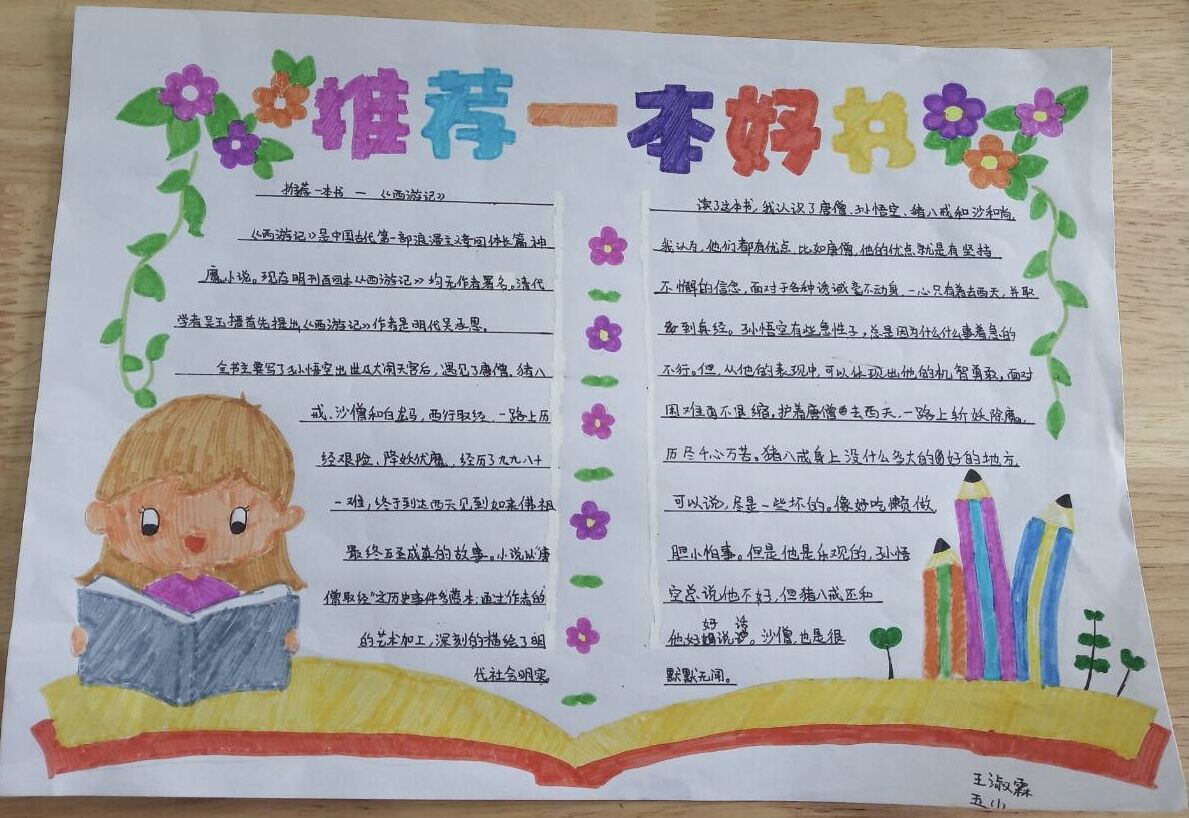 推荐一本好书
推荐一本书 — 《西游记》
《西游记》是中国古代第一部浪漫主义章回体长篇神
魔小说。现存明刊百回本《西游记》均无作者署名。清代
学者吴玉搢首先提出《西游记》作者是明代吴承恩。
全书主要写了孙悟空出世及大闹天宫后，遇见了唐僧、猪八
戒、沙僧和白龙马，西行取经，一路上历
经艰险、降妖伏魔，经历了九九八十
一难，终于到达西天见到如来佛祖
最终五圣成真的故事。小说以"唐
僧取经"这历史事件为蓝本，通过作者的
的艺术加工，深刻的描绘了明
代社会明实。
读了这本书，我认识了唐僧、孙悟空、猪八戒和沙和尚，
我认为，他们都有优点，比如唐僧，他的优点就是有坚持
不懈的信念，面对于各种诱诫毫不动身，一心只有着去西天，并取
到真经。孙悟空有些急性子，总是因为什么什么事着急的
不行。但，从他的表现中，可以体现出他的机智勇敢，面对
困难面不退缩，护着唐僧去西天，一路上斩妖除魔，
历尽千心万苦。猪八戒身上没什么多大的好的地方，
可以说，尽是一些坏的。像好吃懒做，
胆小怕事。但是他是乐观的，孙悟
空总说他不好，但猪八戒还和
他好好说话。沙僧，也是很
默默无闻。
王淑霖
五小